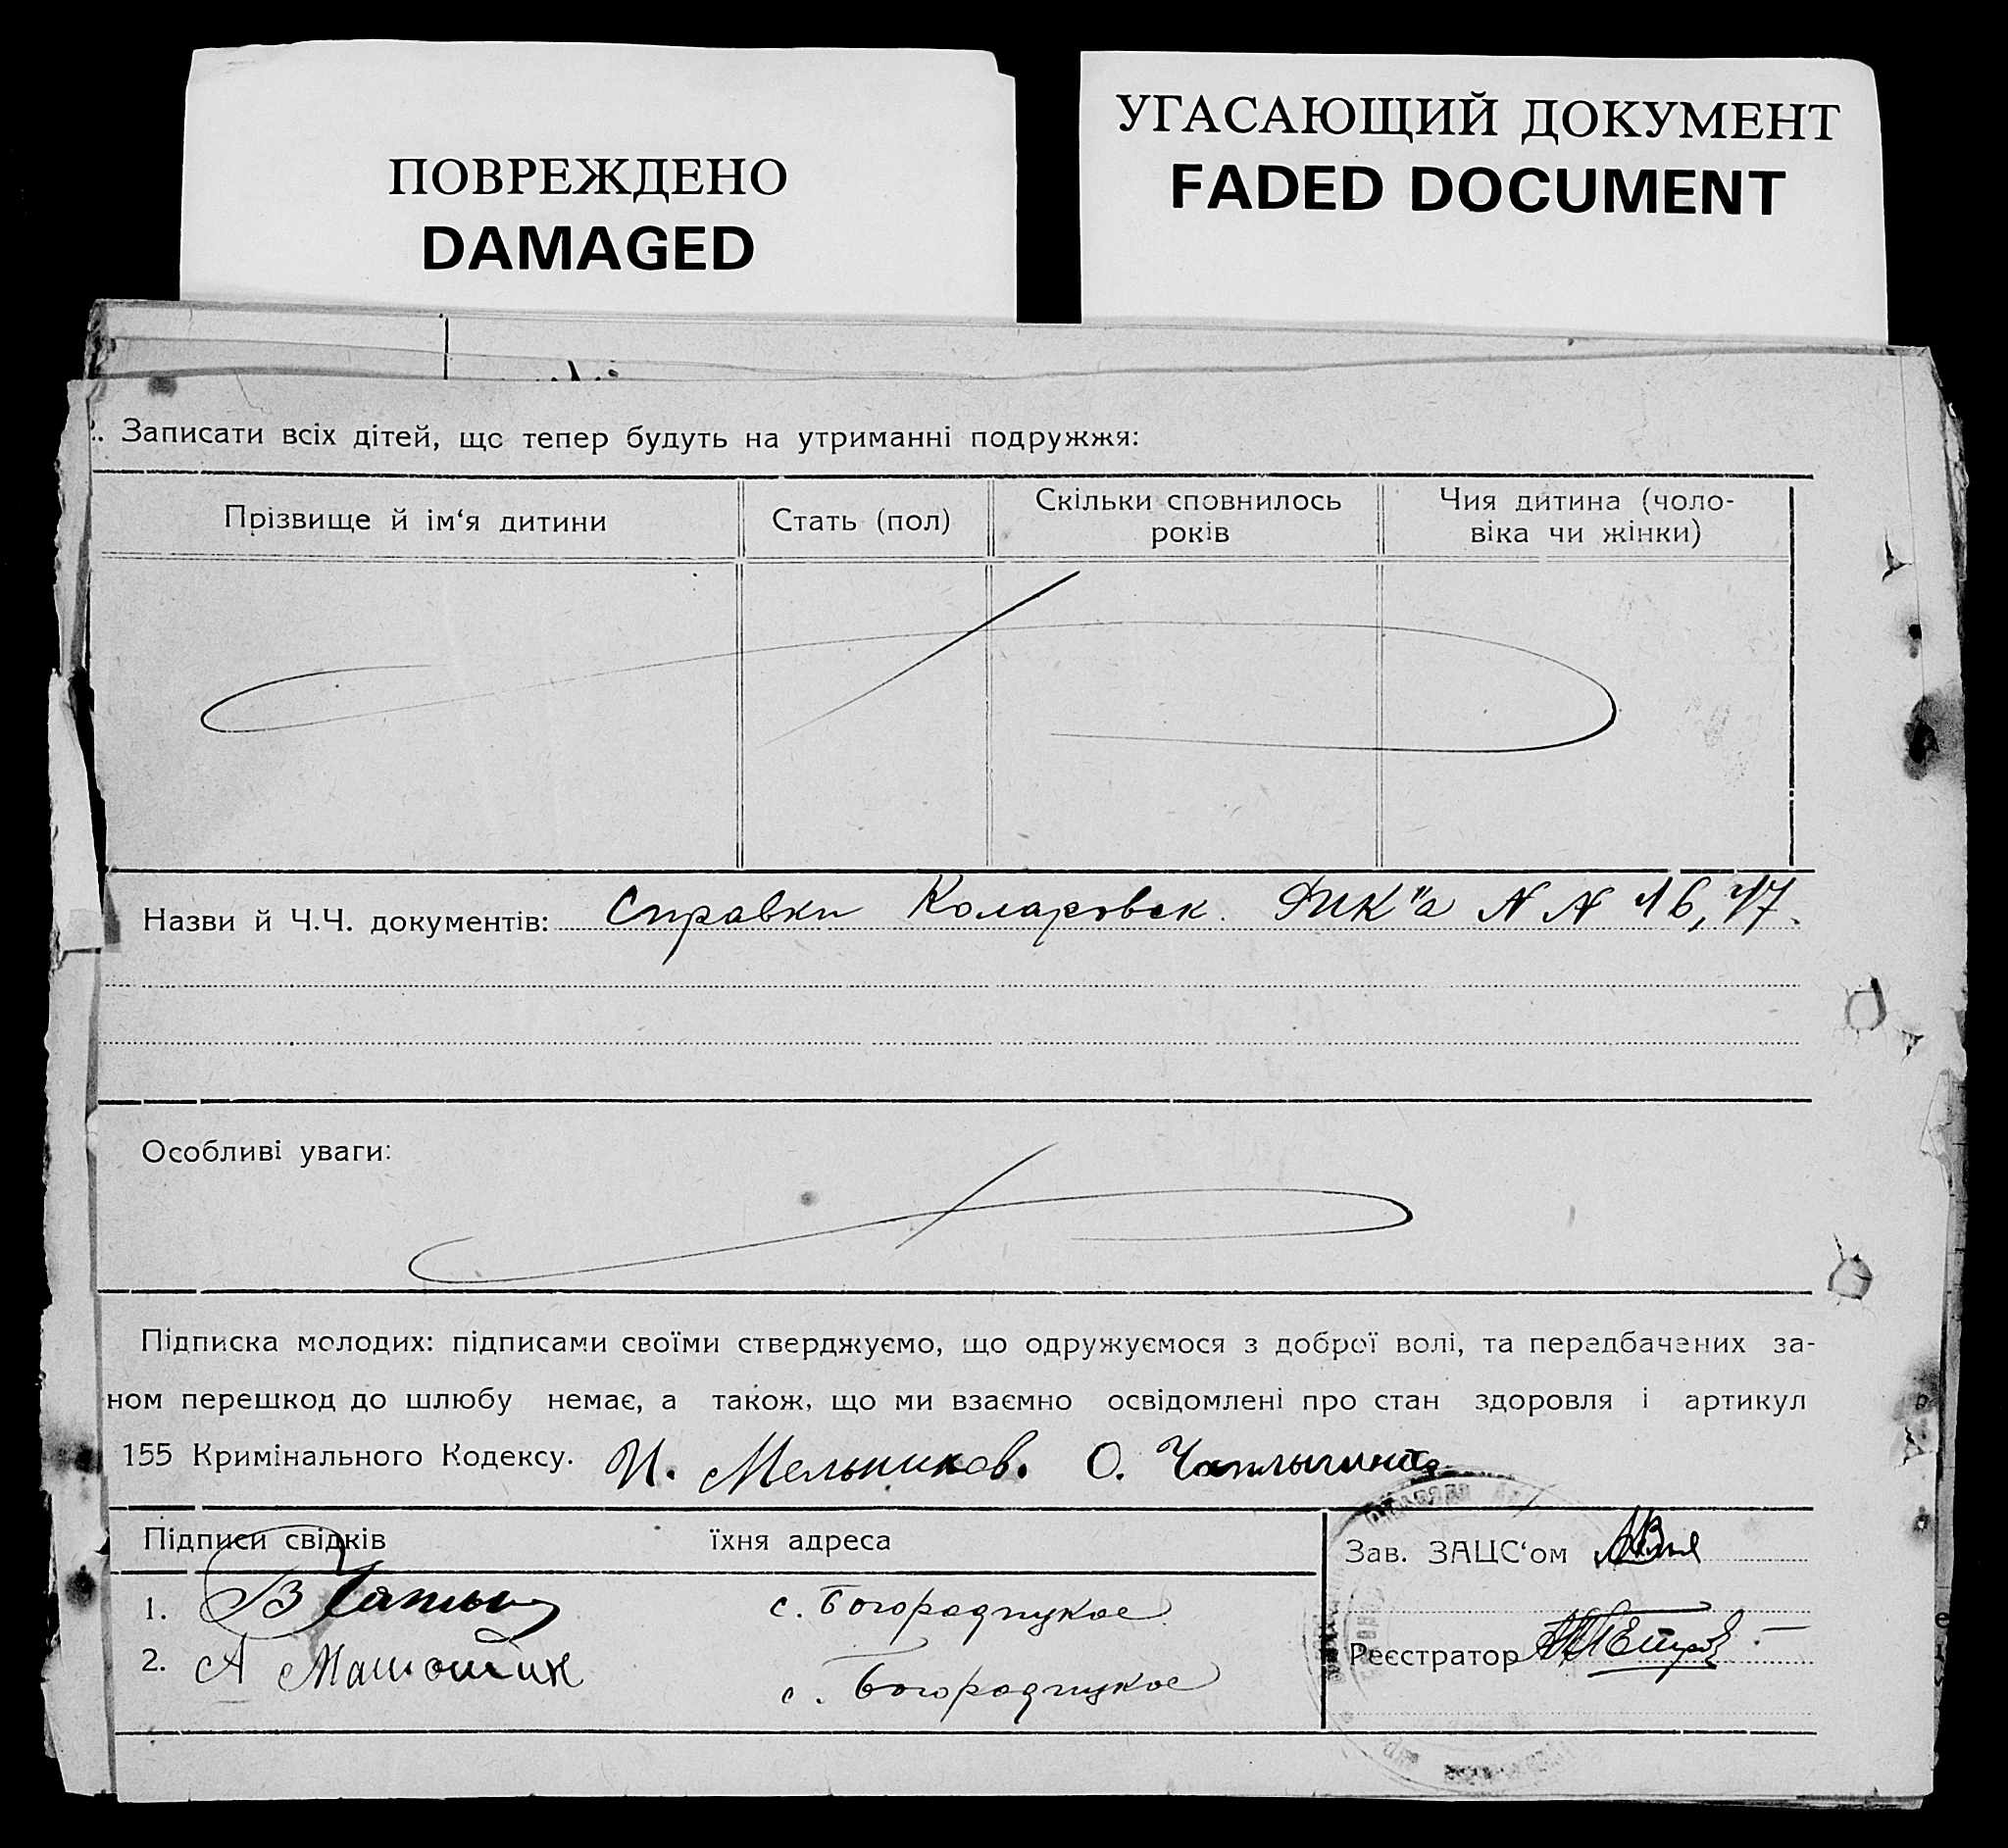 ПОВРЕЖДЕНО
DAMAGED
УГАСАЮЩИЙ ДОКУМЕНТ
FADED DOCUMENT
. Записати всіх дітей, що тепер будуть на утриманні подружжя:
Прізвище й ім‘я дитини
Стать (пол)
Скільки сповнилось
років
Чия дитина (чоло-
віка чи жінки)
Назви й Ч.Ч. документів: Справки Коларовск. РИК"а N N 16, 17.
Особливі уваги:
Підписка молодих: підписами своїми стверджуємо, що одружуємося з доброї волі, та передбачених за-
ном перешкод до шлюбу немає, а також, що ми взаємно освідомлені про стан здоровля і артикул
155 Кримінального Кодексу. И. Мельников. О. Чаплыгина
Підписи свідків
їхня адреса
Зав. ЗАЦС‘ом
1. В
с. Богородицкое
2. А
с. Богородицкое
Реєстратор